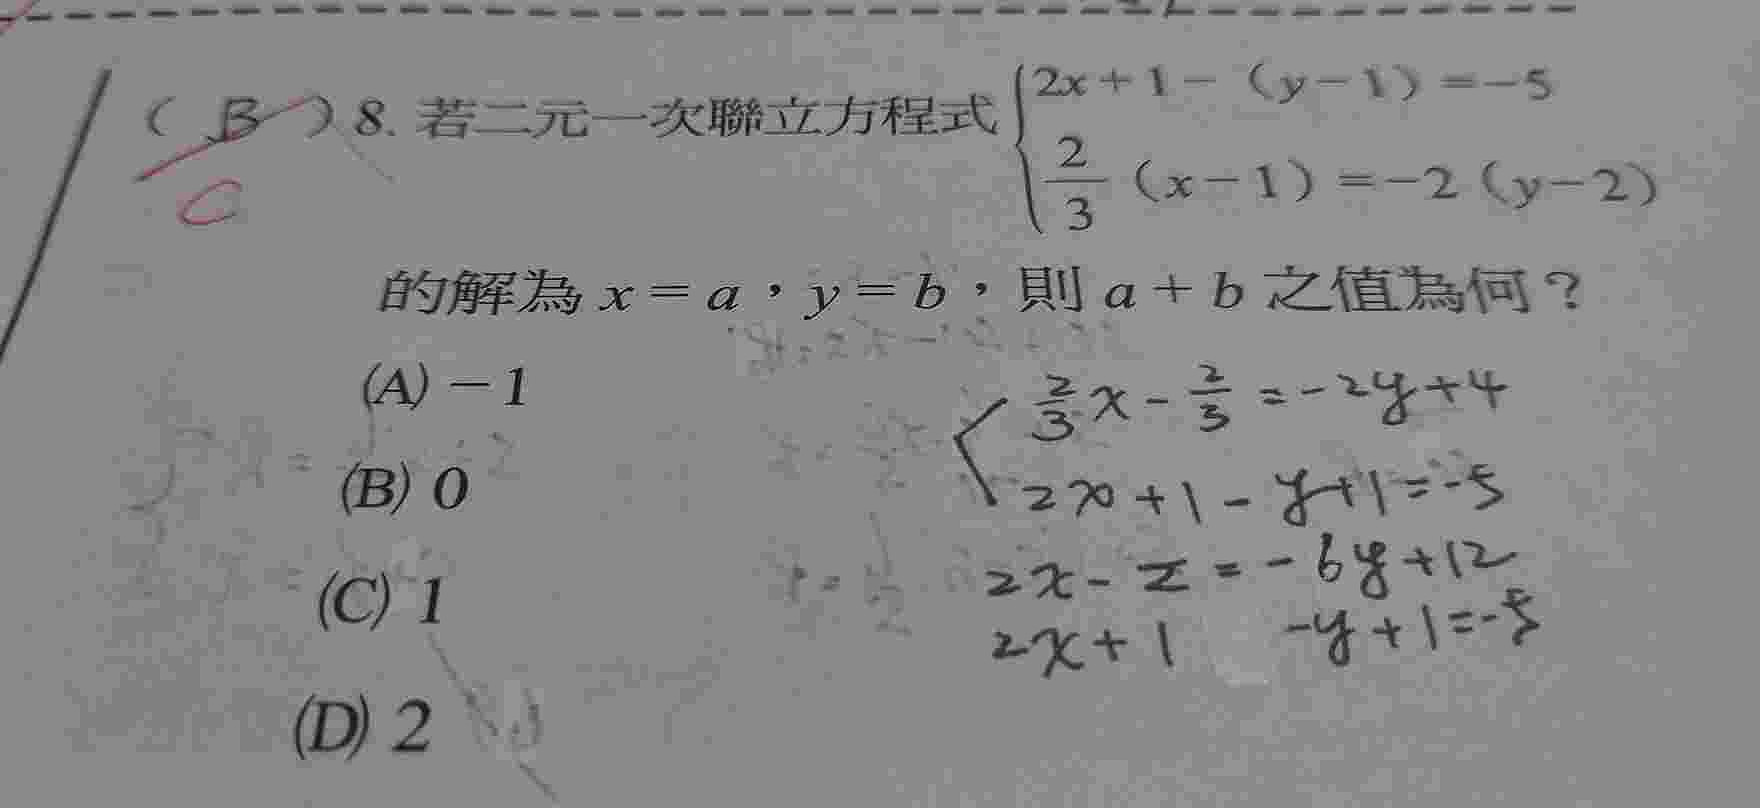 ( B ) 8. 若二元一次聯立方程式 { 2x+1-(y-1)=-5
2/3 (x-1)=-2(y-2)
C
的解為 x=a，y=b，則 a+b 之值為何？
(A) -1
(B) 0
(C) 1
(D) 2
2/3 x - 2/3 = -2y+4
2x+1-y+1=-5
2x-2=-6y+12
2x+1 -y+1=-5